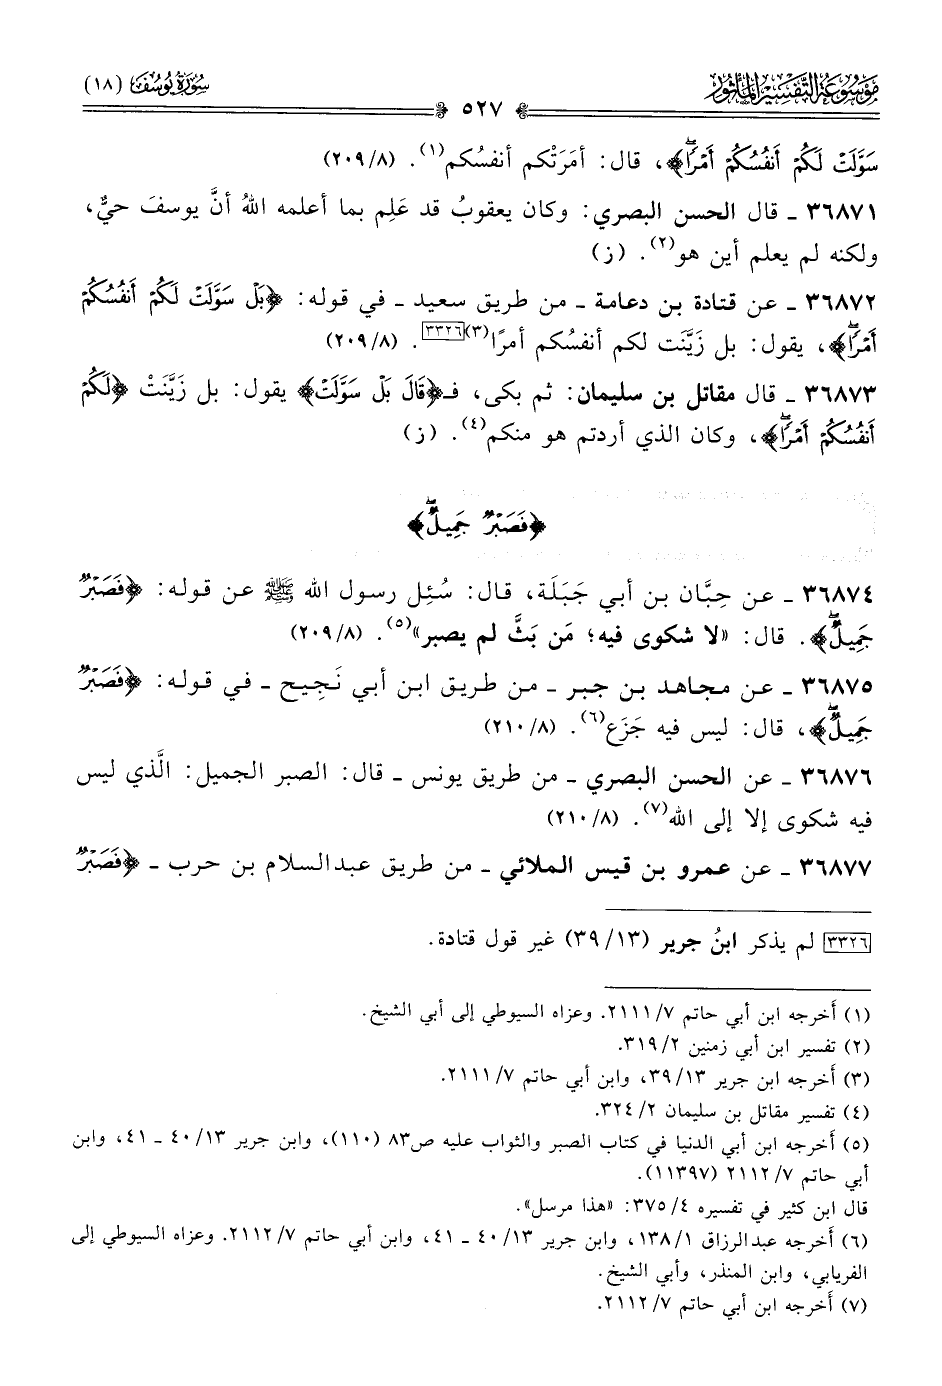 مَوْسُوعَةُ التَّفْسِيرِ المَأْثُورِ
سُورَةُ يُوسُفَ (١٨)
٥٢٧
سَوَّلَتْ لَكُمْ أَنفُسُكُمْ أَمْرًاۖ﴾، قال: أمَرَتْكم أنفسُكم(١). (٢٠٩/٨)
٣٦٨٧١ ـ قال الحسن البصري: وكان يعقوبُ قد عَلِم بما أعلمه اللهُ أنَّ يوسفَ حيٌّ،
ولكنه لم يعلم أين هو(٢). (ز)
٣٦٨٧٢ ـ عن قتادة بن دعامة ـ من طريق سعيد ـ في قوله: ﴿بَلْ سَوَّلَتْ لَكُمْ أَنفُسُكُمْ
أَمْرًاۖ﴾، يقول: بل زَيَّنَت لكم أنفسُكم أمرًا(٣)[٣٣٢٦]. (٢٠٩/٨)
٣٦٨٧٣ ـ قال مقاتل بن سليمان: ثم بكى، فـ﴿قَالَ بَلْ سَوَّلَتْ﴾ يقول: بل زَيَّنَتْ ﴿لَكُمْ
أَنفُسُكُمْ أَمْرًاۖ﴾، وكان الذي أردتم هو منكم(٤). (ز)
﴿فَصَبْرٌ جَمِيلٌۖ﴾
٣٦٨٧٤ ـ عن حِبَّان بن أبي جَبَلَة، قال: سُئِل رسول الله ﷺ عن قوله: ﴿فَصَبْرٌ
جَمِيلٌۖ﴾. قال: «لا شكوى فيه؛ مَن بَثَّ لم يصبر»(٥). (٢٠٩/٨)
٣٦٨٧٥ ـ عن مجاهد بن جبر ـ من طريق ابن أبي نَجِيح ـ في قوله: ﴿فَصَبْرٌ
جَمِيلٌۖ﴾، قال: ليس فيه جَزَع(٦). (٢١٠/٨)
٣٦٨٧٦ ـ عن الحسن البصري ـ من طريق يونس ـ قال: الصبر الجميل: الَّذي ليس
فيه شكوى إلا إلى الله(٧). (٢١٠/٨)
٣٦٨٧٧ ـ عن عمرو بن قيس الملائي ـ من طريق عبدالسلام بن حرب ـ ﴿فَصَبْرٌ
[٣٣٢٦] لم يذكر ابنُ جرير (٣٩/١٣) غير قول قتادة.
(١) أخرجه ابن أبي حاتم ٢١١١/٧. وعزاه السيوطي إلى أبي الشيخ.
(٢) تفسير ابن أبي زمنين ٣١٩/٢.
(٣) أخرجه ابن جرير ٣٩/١٣، وابن أبي حاتم ٢١١١/٧.
(٤) تفسير مقاتل بن سليمان ٣٢٤/٢.
(٥) أخرجه ابن أبي الدنيا في كتاب الصبر والثواب عليه ص٨٣ (١١٠)، وابن جرير ٤٠/١٣ ـ ٤١، وابن
أبي حاتم ٢١١٢/٧ (١١٣٩٧).
قال ابن كثير في تفسيره ٣٧٥/٤: «هذا مرسل».
(٦) أخرجه عبدالرزاق ١٣٨/١، وابن جرير ٤٠/١٣ ـ ٤١، وابن أبي حاتم ٢١١٢/٧. وعزاه السيوطي إلى
الفريابي، وابن المنذر، وأبي الشيخ.
(٧) أخرجه ابن أبي حاتم ٢١١٢/٧.